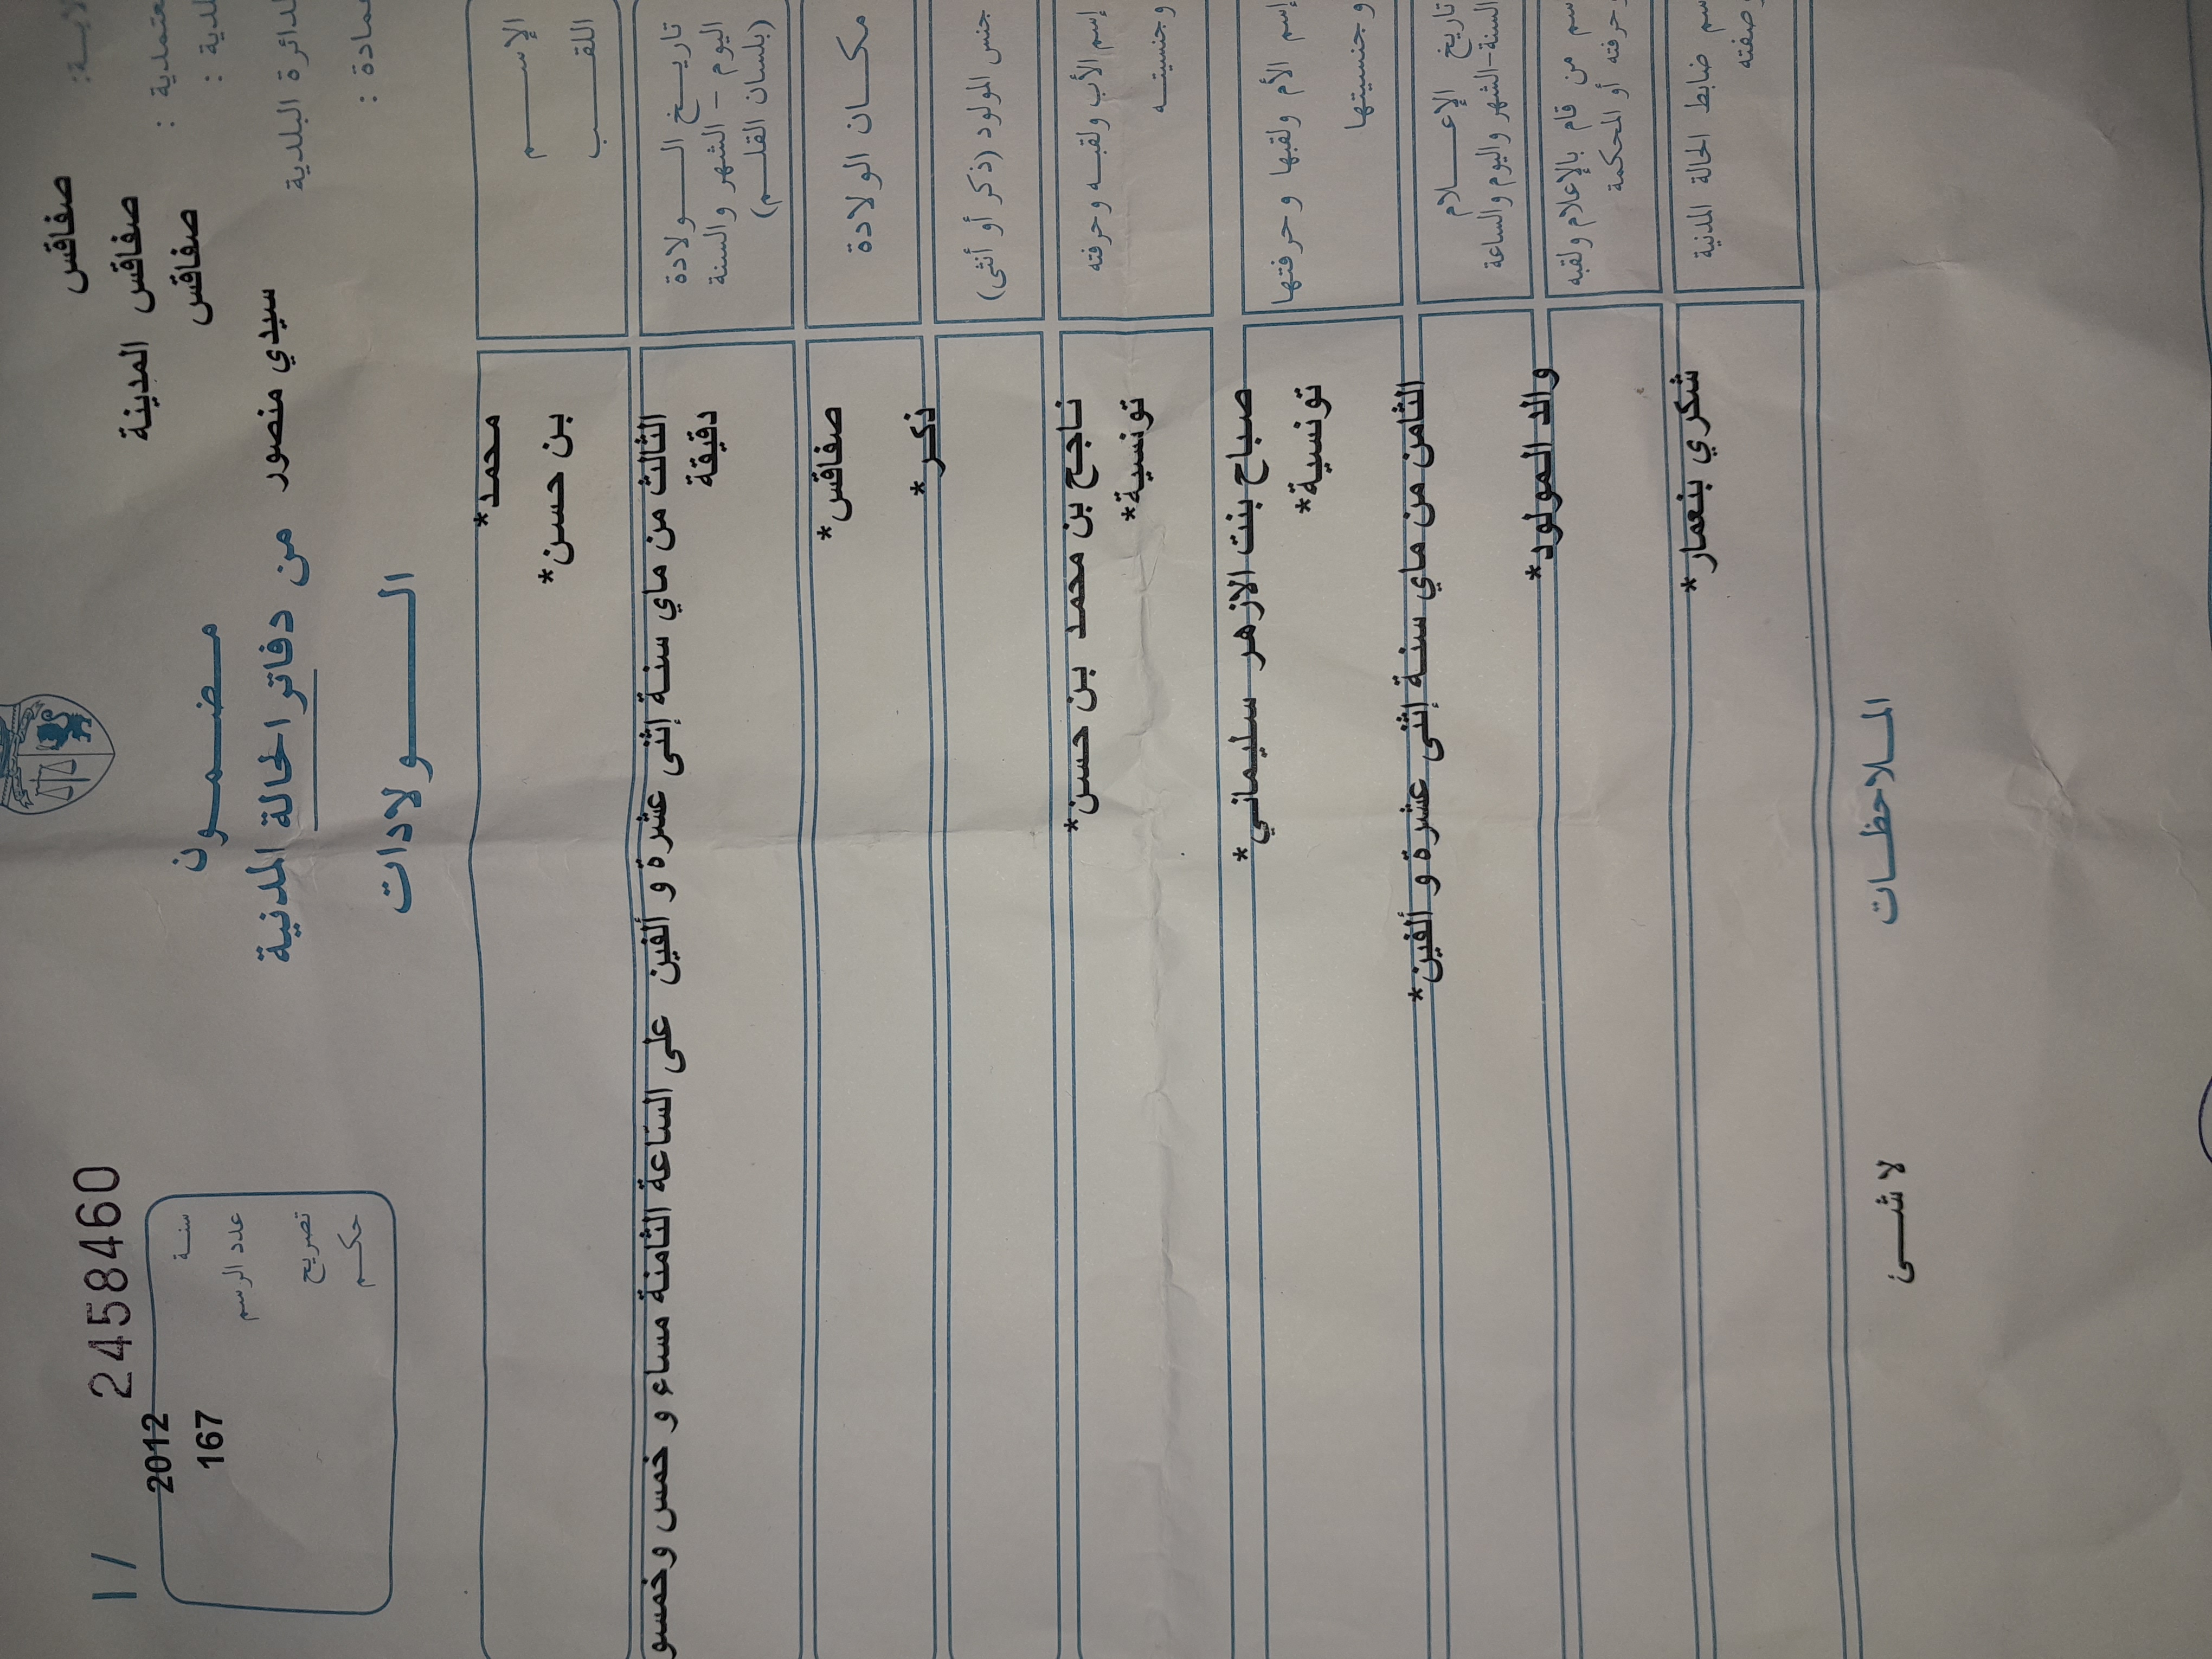 صفاقس
معتمدية : صفاقس المدينة
صفاقس
الدائرة البلدية سيدي منصور
مضمون
من دفاتر الحالة المدنية
الولادات
1/ 2458460
سنة 2012
عدد الرسم 167
تصريح
حكم
الإسم محمد*
اللقب بن حسن*
تاريخ الولادة الثالث من ماي سنة إثنى عشرة و ألفين على الساعة الثامنة مساء و خمس وخمسو
اليوم - الشهر والسنة دقيقة
(بلسان القلم)
مكان الولادة صفاقس*
جنس المولود (ذكر أو أنثى) ذكر*
إسم الأب ولقبه وحرفته ناجح بن محمد بن حسن*
وجنسيته تونسية*
إسم الأم ولقبها وحرفتها صباح بنت الازهر سليماني*
وجنسيتها تونسية*
تاريخ الإعلام الثامن من ماي سنة إثنى عشرة و ألفين*
السنة-الشهر واليوم والساعة
من قام بالإعلام ولقبه والد المولود*
وحرفته أو المحكمة
ضابط الحالة المدنية شكري بنعمار*
وصفته
الملاحظات
لا شئ